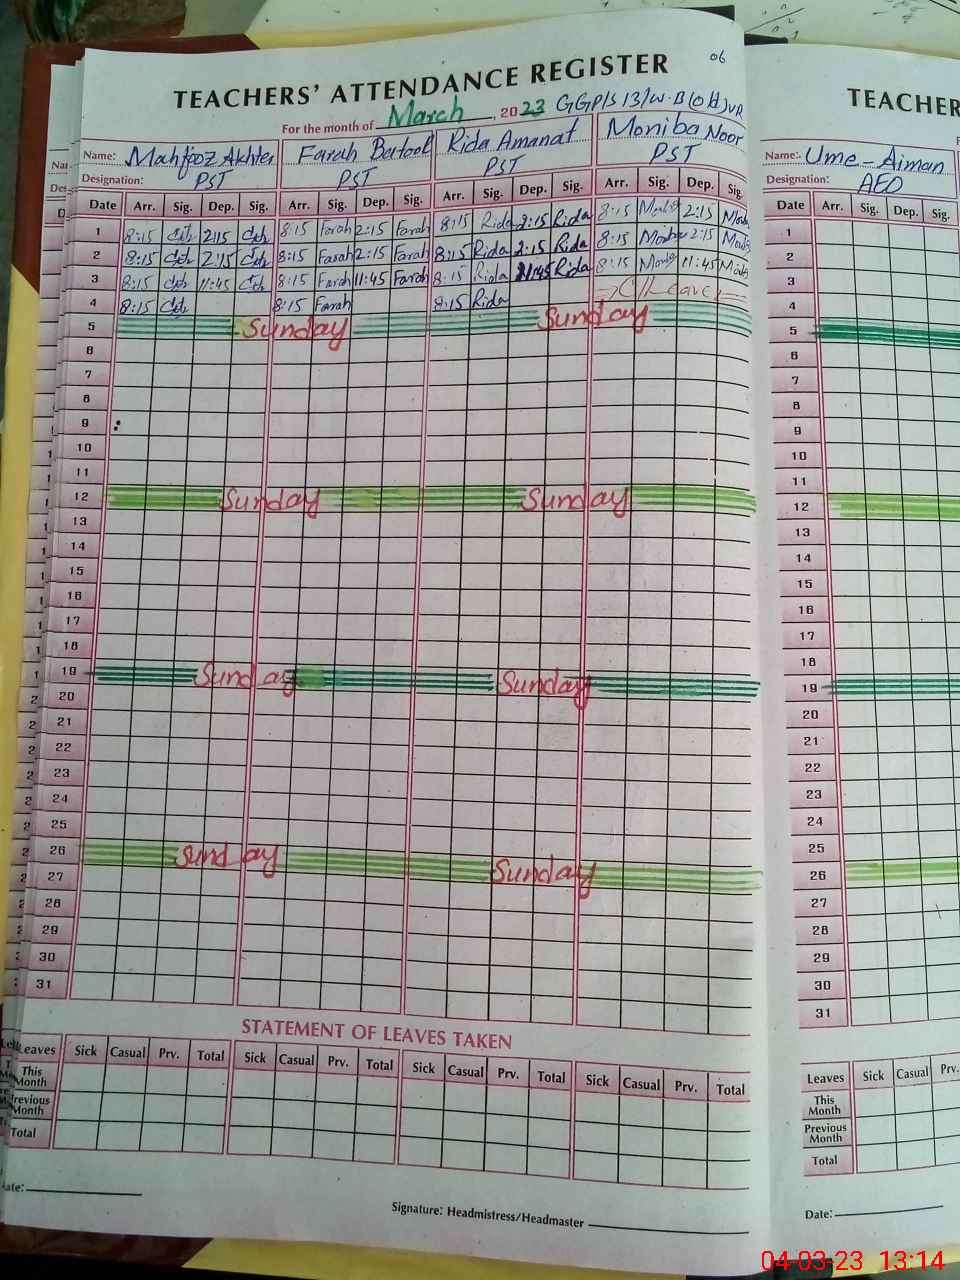 06
TEACHERS' ATTENDANCE REGISTER
For the month of March, 2023 GGP/S 13/W.B (Old) VR
Name: Mahfooz Akhter Farah Batool Rida Amanat Moniba Noor
Designation: PST PST PST PST
Date Arr. Sig. Dep. Sig. Arr. Sig. Dep. Sig. Arr. Sig. Dep. Sig. Arr. Sig. Dep. Sig.
1 8:15 2:15 8:15 Farah 2:15 Farah 8:15 Rida 2:15 Rida 8:15 2:15
2 8:15 2:15 8:15 Farah 2:15 Farah 8:15 Rida 2:15 Rida 8:15 2:15
3 8:15 11:45 8:15 Farah 11:45 Farah 8:15 Rida 11:45 Rida 8:15 11:45
4 8:15 8:15 Farah 8:15 Rida C/Leave
5 Sunday Sunday
6
7
8
9
10
11
12 Sunday Sunday
13
14
15
16
17
18
19 Sunday Sunday
20
21
22
23
24
25
26 Sunday Sunday
27
28
29
30
31
STATEMENT OF LEAVES TAKEN
Leaves Sick Casual Prv. Total Sick Casual Prv. Total Sick Casual Prv. Total Sick Casual Prv. Total
This Month
Previous Month
Total
Date:
Signature: Headmistress/Headmaster
TEACHER
Name: Ume-Aiman
Designation: AEO
Date Arr. Sig. Dep. Sig.
1
2
3
4
5
6
7
8
9
10
11
12
13
14
15
16
17
18
19
20
21
22
23
24
25
26
27
28
29
30
31
Leaves Sick Casual Prv.
This Month
Previous Month
Total
Date:
04-03-23 13:14